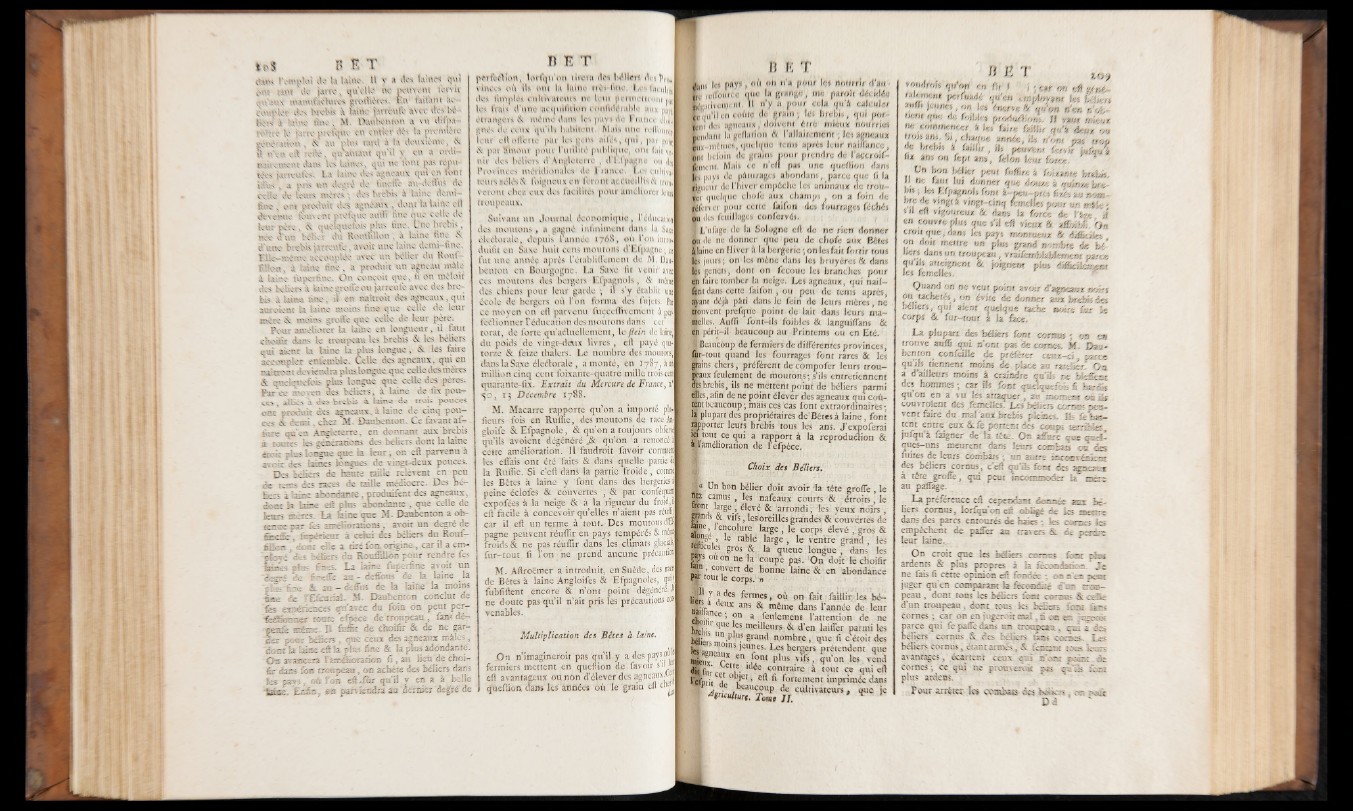 208 BET
dans l'emploi de la laine. Il y a des laines qui
ont tant de jarre, qu'elle ne peuvent ſervir
qu'aux manufactures groſſières. En faiſant ac-
coupler des brebis à laine jarreuſe avec des bé-
liers à laine fine, M. Daubenton a vu diſpa-
roître le jarre preſque en entier dès la première
génération, & au plus tard à la deuxième, &
il n'en eſt reſté, qu'autant qu'il y en a ordi-
nairement dans les laines, qui ne ſont pas répu-
tées jarreuſes. La laine des agneaux qui en ſont
iſſus, a pris un degré de fineſſe au-deſſus de
celle de leurs mères; des brebis à laine demi-
fine, ont produit des agneaux, dont la laine eſt
devenue ſouvent preſque auſſi fine que celle de
leur père, & quelquefois plus fine. Une brebis,
née d'un bélier du Rouſſillon, à laine fine &
d'une brebis jarreuſe, avoit une laine demi-fine.
Elle-même accouplée avec un bélier du Rouſ-
ſillon, à laine fine, a produit un agneau mâle
à laine ſuperfine. On conçoit que, ſi on mêloit
des béliers à laine groſſe ou jarreuſe avec des bre-
bis à laine fine, il en naîtroit des agneaux, qui
auroient la laine moins fine que celle de leur
mère & moins groſſe que celle de leur père.
Pour améliorer la laine en longueur, il faut
choiſir dans le troupeau les brebis & les béliers
qui aient la laine la plus longue, & les faire
accoupler enſemble. Celle des agneaux, qui en
naîtront deviendra plus longue que celle des mères
& quelquefois plus longue que celle des pères.
Par ce moyen des béliers, à laine de ſix pou-
ces, alliés à des brebis à laine de trois pouces
ont produit des agneaux, à laine de cinq pou-
ces & demi, chez M. Daubenton. Ce ſavant aſ-
ſure qu'en Angleterre, en donnant aux brebis
à toutes les générations des béliers dont la laine
étoit plus longue que la leur, on eſt parvenu à
avoir des laines longues de vingt-deux pouces.
Des béliers de haute taille relèvent en peu
de tems des races de taille médiocre. Des bé-
liers à laine abondante, produiſent des agneaux,
dont la laine eſt plus abondante, que celle de
leurs mères. La laine que M. Daubenton a ob-
tenue par ſes améliorations, avoit un degré de
fineſſe, ſupérieur à celui des béliers du Rouſ-
ſillon, dont elle a tiré ſon origine, car il a em-
ployé des béliers du Rouſſillon pour rendre ſes
laines plus fines. La laine ſuperfine avoit un
degré de fineſſe au-deſſous de la laine la
plus fine & au-deſſus de la laine la moins
fine de l'Eſcurial. M. Daubenton conclut de
ſes expériences qu'avec du ſoin on peut per-
fectionner toute eſpèce de troupeau, ſans dé-
penſe même. Il ſuffit de choiſir & de ne gar-
der pour béliers, que ceux des agneaux mâles,
dont la laine eſt la plus fine & la plus abondante.
On avancera l'amélioration ſi, au lieu de choi-
ſir dans ſon troupeau, on achète des béliers dans
les pays, où l'on eſt ſûr qu'il y en a à belle
laine. Enfin, on parviendra au dernier degré de
BET
perfection, lorſqu'on tirera des béliers des Pro-
vinces où ils ont la laine très-fine. Les facultés
des ſimples cultivateurs ne leur permettront pas
les frais d'une acquiſition conſidérable aux pays
étrangers & même dans les pays de France éloi-
gnés de ceux qu'ils habitent. Mais une reſſource
leur eſt offerte par les gens aiſés, qui, par goût
& par amour pour l'utilité publique, ont fait ve-
nir des béliers d'Angleterre, d'Eſpagne ou des
Provinces méridionales de France. Les cultiva-
teurs zélés & ſoigneux en ſeront accueillis & trou-
veront chez eux des facilités pour améliorer leurs
troupeaux.
Suivant un Journal économique, l'éducation
des moutons, a gagné infiniment dans la Saxe
électorale, depuis l'année 1768, où l'on intro-
duiſit en Saxe huit cens moutons d'Eſpagne, ce
fut une année après l'établiſſement de M. Dau-
benton en Bourgogne. La Saxe fit venir avec
ces moutons des bergers Eſpagnols, & même
des chiens pour leur garde; il s'y établit une
école de bergers où l'on forma des ſujets. Par
ce moyen on eſt parvenu ſucceſſivement à per-
fectionner l'éducation des moutons dans cet Élec-
torat, de ſorte qu'actuellement, le ſtein de laine,
du poids de vingt-deux livres, eſt payé qua-
torze & ſeize thalers. Le nombre des moutons,
dans la Saxe électorale, a monté, en 1787, à un
million cinq cent ſoixante-quatre mille trois cent
quarante-ſix. Extrait du Mercure de France, n°
50, 13 Décembre 1788.
M. Macarre rapporte qu'on a importé plu-
ſieurs fois en Ruſſie, des moutons de race An-
gloiſe & Eſpagnole, & qu'on a toujours obſervé
qu'ils avoient dégénéré & qu'on a renoncé à
cette amélioration. Il faudroit ſavoir comment
les eſſais ont été faits & dans quelle partie de
la Ruſſie. Si c'eſt dans la partie froide, comme
les Bêtes à laine y ſont dans des bergeries à
peine écloſes & couvertes, & par conſéquent
expoſées à la neige & à la rigueur du froid, il
eſt facile à concevoir qu'elles n'aient pas réuſſi;
car il eſt un terme à tout. Des moutons d'Eſ-
pagne peuvent réuſſir en pays tempérés & même
froids & ne pas réuſſir dans les climats glacials,
ſur-tout ſi l'on ne prend aucune précaution.
M. Aſtroëmer a introduit, en Suède, des races
de Bêtes à laine Angloiſes & Eſpagnoles, qui y
ſubſiſtent encore & n'ont point dégénéré. Je
ne doute pas qu'il n'ait pris les précautions con-
venables.
Multiplication des Bêtes à laine.
On n'imagineroit pas qu'il y a des pays où les
fermiers mettent en queſtion de ſavoir s'il leur
eſt avantageux ou non d'élever des agneaux. Cette
queſtion dans les années où le grain eſt cher
dans
BET
dans les pays, où on n'a pour les nourrir d'au-
tre reſſource que la grange, me paroît décidée
négativement. Il n'y a pour cela qu'à calculer
ce qu'il en coûte de grain; les brebis, qui por-
tent des agneaux, doivent être mieux nourries
pendant la geſtation & l'allaitement; les agneaux
eux-mêmes, quelque tems après leur naiſſance,
ont beſoin de grains pour prendre de l'accroiſ-
ſement. Mais ce n'eſt pas une queſtion dans
les pays de pâturages abondans, parce que ſi la
rigueur de l'hiver empêche les animaux de trou-
ver quelque choſe aux champs, on a ſoin de
réſerver pour cette ſaiſon des fourrages ſéchés
ou des feuillages conſervés.
L'uſage de la Sologne eſt de ne rien donner
ou de ne donner que peu de choſe aux Bêtes
à laine en Hiver à la bergerie; on les fait ſortir tous
les jours; on les mène dans les bruyères & dans
les genets, dont on ſecoue les branches pour
en faire tomber la neige. Les agneaux, qui naiſ-
ſent dans cette ſaiſon, ou peu de tems après,
ayant déjà pâti dans le ſein de leurs mères, ne
trouvent preſque point de lait dans leurs ma-
melles. Auſſi ſont-ils foibles & languiſſans &
en périt-il beaucoup au Printems ou en Été.
Beaucoup de fermiers de différentes provinces,
ſur-tout quand les fourrages ſont rares & les
grains chers, préfèrent de compoſer leurs trou-
peaux ſeulement de moutons; s'ils entretiennent
des brebis, ils ne mettent point de béliers parmi
elles, afin de ne point élever des agneaux qui coû-
tent beaucoup; mais ces cas ſont extraordinaires;
la plupart des propriétaires de Bêtes à laine, font
rapporter leurs brebis tous les ans. J'expoſerai
ici tout ce qui a rapport à la reproduction &
à l'amélioration de l'eſpèce.
Choix des Béliers.
« Un bon bélier doit avoir la tête groſſe, le
nez camus, les naſeaux courts & étroits, le
front large, élevé & arrondi, les yeux noirs,
grands & vifs, les oreilles grandes & couvertes de
laine, l'encolure large, le corps élevé, gros &
alongé, le rable large, le ventre grand, les
teſticules gros & la queue longue, dans les
pays où on ne la coupe pas. On doit le choiſir
ſain, couvert de bonne laine & en abondance
par tout le corps. »
Il y a des fermes, où on fait ſaillir les bé-
liers à deux ans & même dans l'année de leur
naiſſance; on a ſeulement l'attention de ne
choiſir que les meilleurs & d'en laiſſer parmi les
brebis un plus grand nombre, que ſi c'étoit des
béliers moins jeunes. Les bergers prétendent que
les agneaux en ſont plus vifs, qu'on les vend
mieux. Cette idée contraire à tout ce qui eſt
dit ſur cet objet, eſt ſi fortement imprimée dans
l'eſprit de beaucoup de cultivateurs, que je
Agriculture. Tome II.
BET 209
voudrois qu'on en fît car on eſt géné-
ralement perſuadé qu'en employant les béliers
auſſi jeunes, on les énerve & qu'on n'en ob-
tient que de foibles productions. Il vaut mieux
ne commencer à les faire ſaillir qu'à deux ou
trois ans. Si, chaque année, ils n'ont pas trop
de brebis à ſaillir, ils peuvent ſervir juſqu'à
ſix ans ou ſept ans, ſelon leur force.
Un bon bélier peut ſuffire à ſoixante brebis.
Il ne faut lui donner que douze à quinze bre-
bis; les Eſpagnols ſont à-peu-près fixés au nom-
bre de vingt à vingt-cinq femelles pour un mâle;
s'il eſt vigoureux & dans la force de l'âge, il
en couvre plus que s'il eſt vieux & affoibli. On
croit que, dans les pays montueux & difficiles,
on doit mettre un plus grand nombre de bé-
liers dans un troupeau, vraiſemblablement parce
qu'ils atteignent & joignent plus difficilement
les femelles.
Quand on ne veut point avoir d'agneaux noirs
ou tachetés, on évite de donner aux brebis des
béliers, qui aient quelque tache noire ſur le
corps & ſur-tout à la face.
La plupart des béliers ſont cornus; on en
trouve auſſi qui n'ont pas de cornes. M. Dau-
benton conſeille de préférer ceux-ci, parce
qu'ils tiennent moins de place au ratelier. On
a d'ailleurs moins à craindre qu'ils ne bleſſent
des hommes; car ils ſont quelquefois ſi hardis
qu'on en a vu les attaquer, au moment où ils
couvroient des femelles. Les béliers cornus peu-
vent faire du mal aux brebis pleines. Ils ſe bat-
tent entre eux & ſe portent des coups terribles,
juſqu'à ſaigner de la tête. On aſſure que quel-
ques-uns meurent dans leurs combats ou des
ſuites de leurs combats; un autre inconvénient
des béliers cornus, c'eſt qu'ils font des agneaux
à tête groſſe, qui peut incommoder la mère
au paſſage.
La préférence eſt cependant donnée aux bé-
liers cornus, lorſqu'on eſt obligé de les mettre
dans des parcs entourés de haies; les cornes les
empêchent de paſſer au travers & de perdre
leur laine.
On croit que les béliers cornus ſont plus
ardents & plus propres à la fécondation. Je
ne ſais ſi cette opinion eſt fondée; on n'en peut
juger qu'en comparant la fécondité d'un trou-
peau, dont tous les béliers ſont cornus & celle
d'un troupeau, dont tous les béliers ſont ſans
cornes; car on en jugeroit mal, ſi on en jugeoit
parce qui ſe paſſe dans un troupeau, qui a des
béliers cornus & des béliers ſans cornes. Les
béliers cornus, étant armés, & ſentant tous leurs
avantages, écartent ceux qui n'ont point de
cornes; ce qui ne prouveroit pas qu'ils ſont
plus ardens.
Pour arrêter les combats des béliers, on poſe
D d